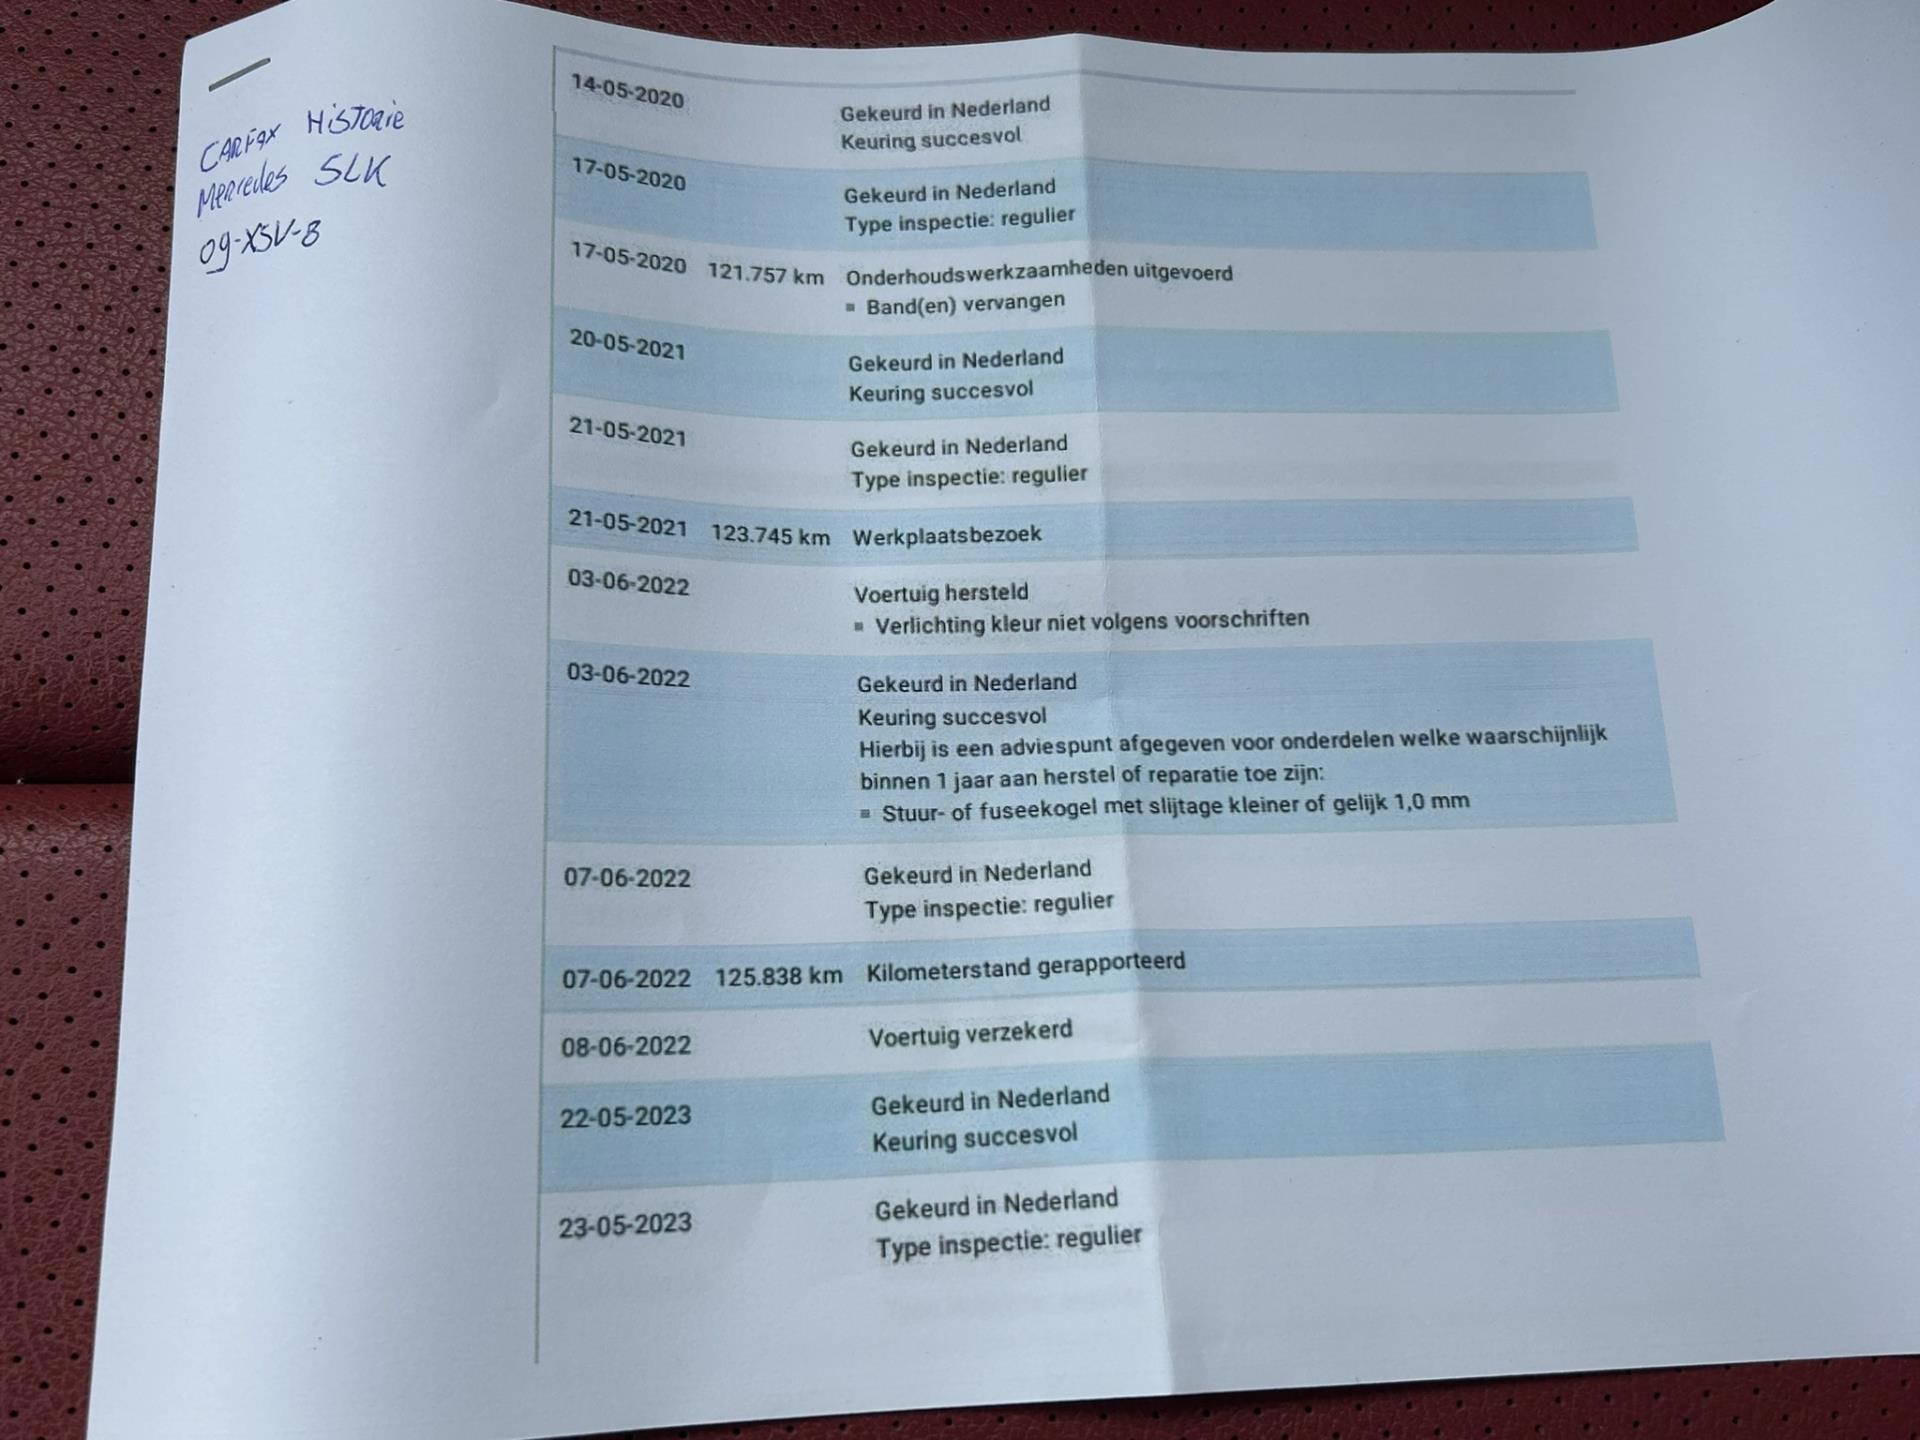 CARFAX HISTORIE
Mercedes SLK
09-XSV-8
14-05-2020
Gekeurd in Nederland
Keuring succesvol
17-05-2020
Gekeurd in Nederland
Type inspectie: regulier
17-05-2020 121.757 km Onderhoudswerkzaamheden uitgevoerd
▪ Band(en) vervangen
20-05-2021
Gekeurd in Nederland
Keuring succesvol
21-05-2021
Gekeurd in Nederland
Type inspectie: regulier
21-05-2021 123.745 km Werkplaatsbezoek
03-06-2022
Voertuig hersteld
▪ Verlichting kleur niet volgens voorschriften
03-06-2022
Gekeurd in Nederland
Keuring succesvol
Hierbij is een adviespunt afgegeven voor onderdelen welke waarschijnlijk
binnen 1 jaar aan herstel of reparatie toe zijn:
▪ Stuur- of fuseekogel met slijtage kleiner of gelijk 1,0 mm
07-06-2022
Gekeurd in Nederland
Type inspectie: regulier
07-06-2022 125.838 km Kilometerstand gerapporteerd
08-06-2022 Voertuig verzekerd
22-05-2023
Gekeurd in Nederland
Keuring succesvol
23-05-2023
Gekeurd in Nederland
Type inspectie: regulier